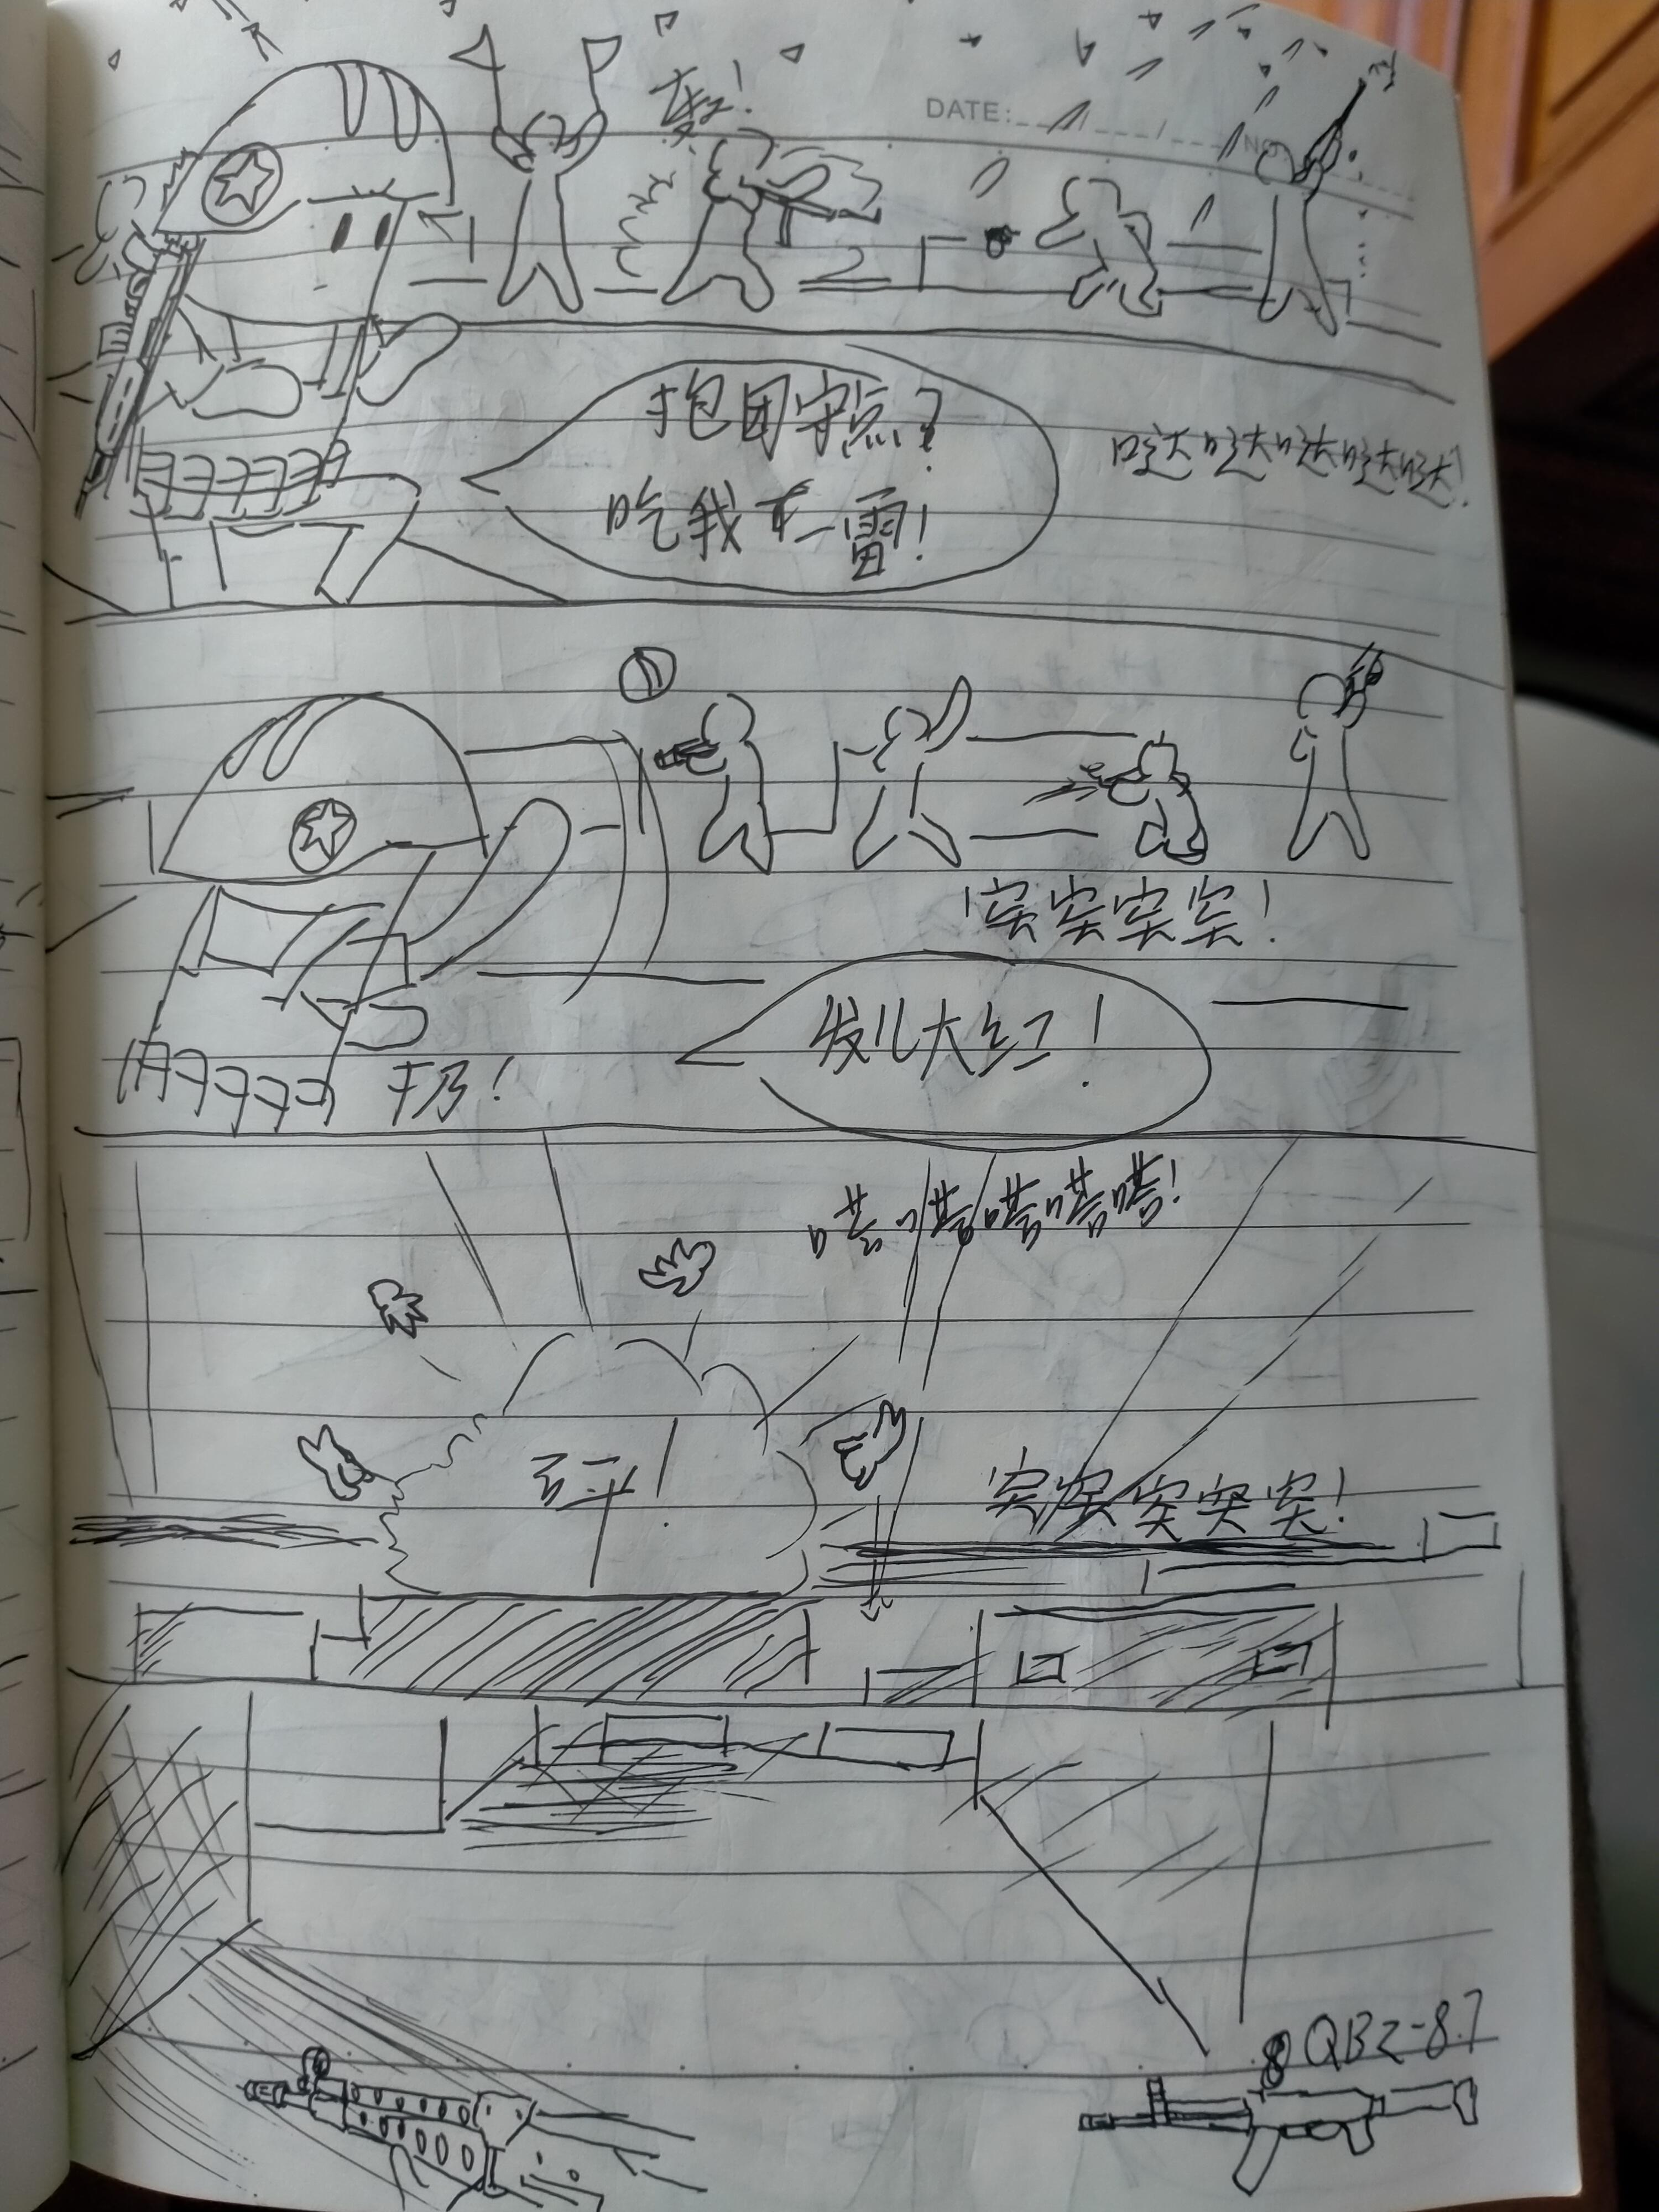 DATE:
NO
抱团守点?
吃我一雷!
哒哒哒哒哒!
突突突突!
发儿大红!
扔!
嗒嗒嗒嗒嗒!
突突突突突!
QBZ-87